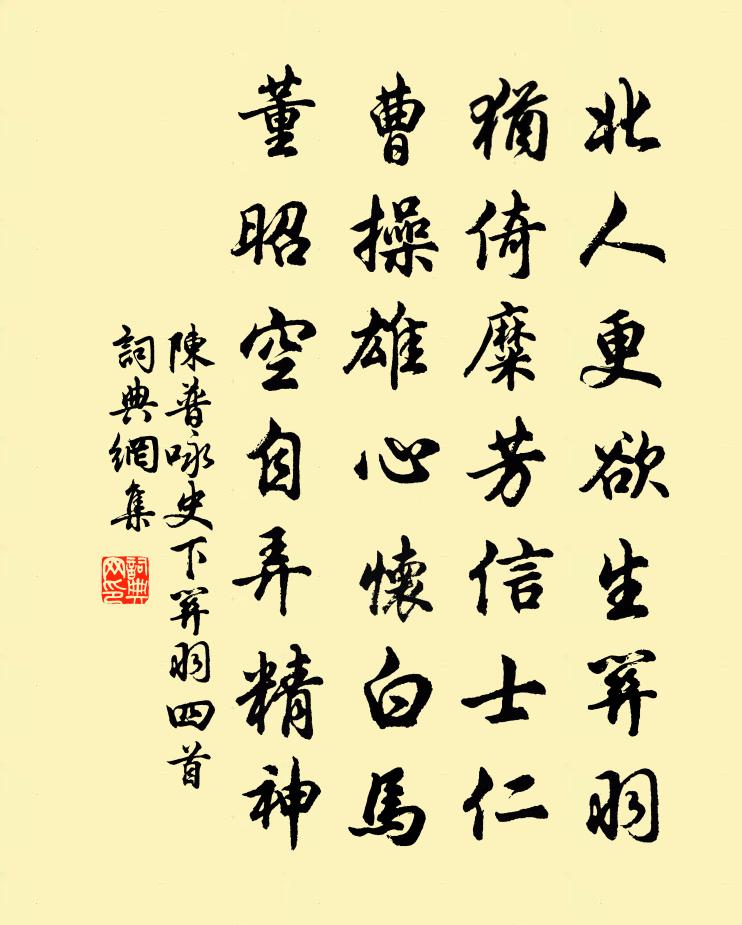 北人更欲生關羽
猶倚糜芳信士仁
曹操雄心懷白馬
董昭空自弄精神
陳普咏史下關羽四首
詞典網集
詞典
网印